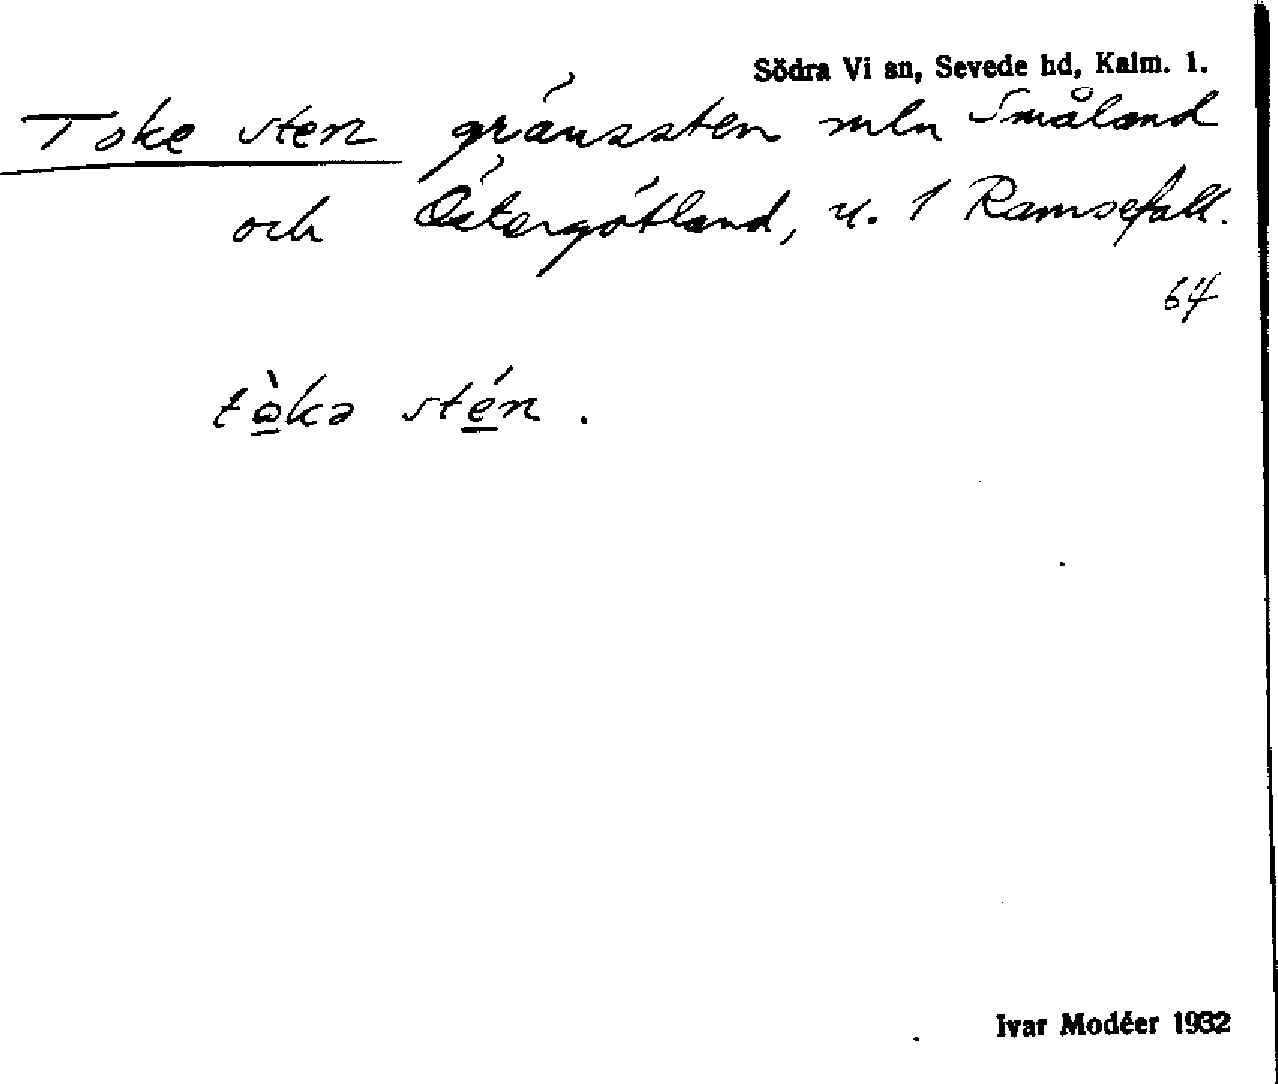 Södra Vi sn, Sevede hd, Kalm. l.
Toke sten gränssten mln Småland
och Östergötland, u. 1 Ramsefall.
64
tò̱kə sté̱n.
Ivar Modéer 1932